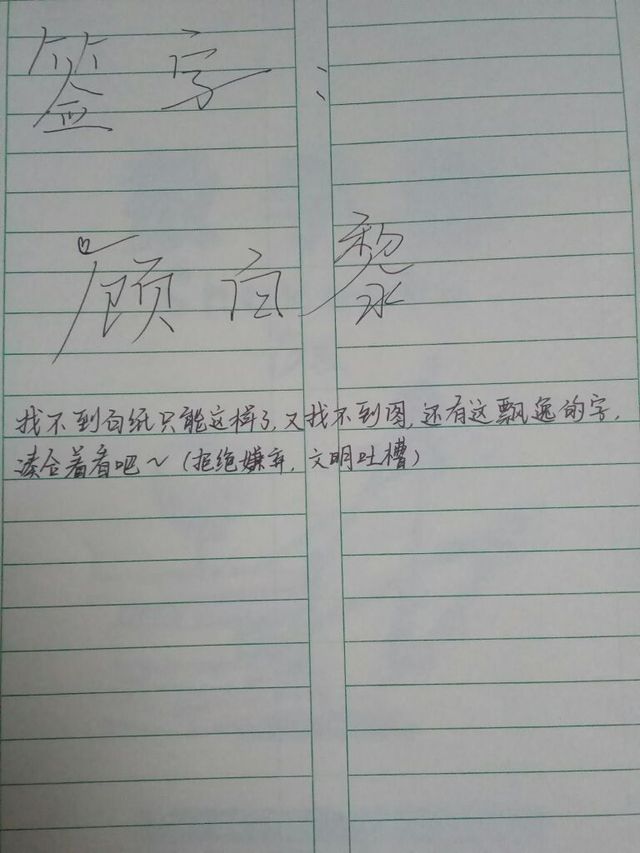 签字：
顾白黎
找不到白纸只能这样了,又找不到图,还有这飘逸的字,
凑合着看吧~(拒绝嫌弃,文明吐槽)